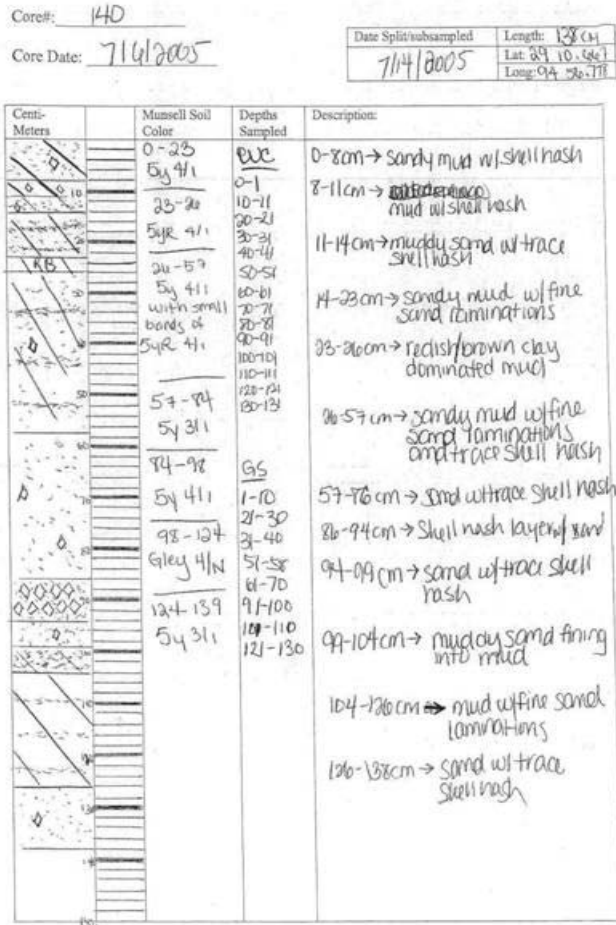 Core#: 140
Core Date: 7/6/2005
Date Split/subsampled
7/14/2005
Length: 138 cm
Lat: 29 10.667
Long: 94 56.778
Centi-
Meters
Munsell Soil
Color
Depths
Sampled
Description:
10
RB
50
60
70
80
130
150
0-23
5y 4/1
23-26
5yR 4/1
26-57
5y 4/1
with small
bands of
5yR 4/1
57-84
5y 3/1
84-98
5y 4/1
98-124
Gley 4/N
124-139
5y 3/1
0-1
10-11
20-21
30-31
40-41
50-51
60-61
70-71
80-81
90-91
100-101
110-111
120-121
130-131
GS
1-10
21-30
31-40
51-58
61-70
91-100
101-110
121-130
0-8cm→ sandy mud w/ shell hash
8-11cm→
mud w/ shell hash
11-14cm→ muddy sand w/ trace
shell hash
14-23cm→ sandy mud w/ fine
sand laminations
23-26cm→ redish/brown clay
dominated mud
26-57cm→ sandy mud w/ fine
sand laminations
and trace shell hash
57-86cm→ sand w/ trace shell hash
86-94cm→ Shell hash layer w/ sand
94-99cm→ sand w/ trace shell
hash
99-104cm→ muddy sand fining
into mud
104-126cm→ mud w/ fine sand
laminations
126-138cm→ sand w/ trace
shell hash